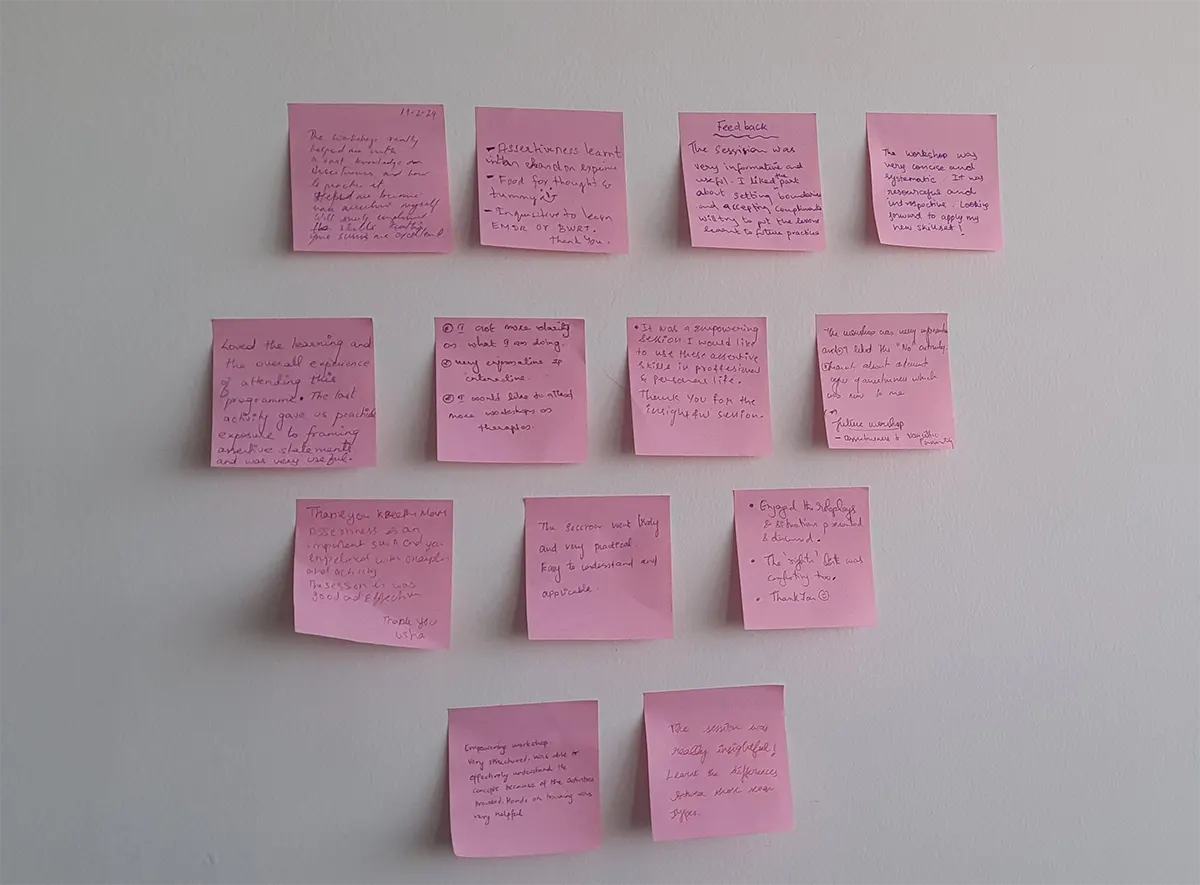 19-2-24
The workshop really
helped me with
a vast knowledge on
Assertiveness and how
to practice it.
Helped me become
more assertive myself
Will surely implement
the skills
your sessions are excellent
- Assertiveness learnt
in an hand on experience
- Food for thought &
tummy
- Inquisitive to learn
EMDR or BWRT.
Thank You.
Feedback
The Sessision was
very informative and
useful. I liked the part
about setting boundaries
and accepting compliments
will try to put the lessons
learnt to future practice
The workshop was
very concise and
systematic. It was
resourceful and
introspective. Looking
forward to apply my
new skillset!
Loved the learning and
the overall experience
of attending this
programme. The last
activity gave us practical
exposure to framing
assertive statements
and was very useful.
① I got more clarity
on what I am doing.
② very informative &
interactive.
③ I would like to attend
more workshops on
therapies.
• It was a empowering
session. I would like
to use these assertive
skills in professional
& personal life.
Thank You for the
insightful session.
The workshop was very informative
and I liked the "No" activity.
Learnt about different
types of assertiveness which
was new to me
future workshop
- assertiveness &
Thank you Kreethi Mam
Assertiveness is an
important skill and you
explained with examples
and activity
The session is was
Good ad Effective
Thank you
Usha
The session went lively
and very practical.
Easy to understand and
applicable.
• Enjoyed the roleplays
& situations presented
& discussed.
• The 'rights' list was
comforting too.
• Thank You ☺
Empowering workshop.
Very structured. Was able to
effectively understand the
concepts because of the activities
provided. Hands on training was
very helpful
The session was
really insightful!
Learnt the differences
between
types.